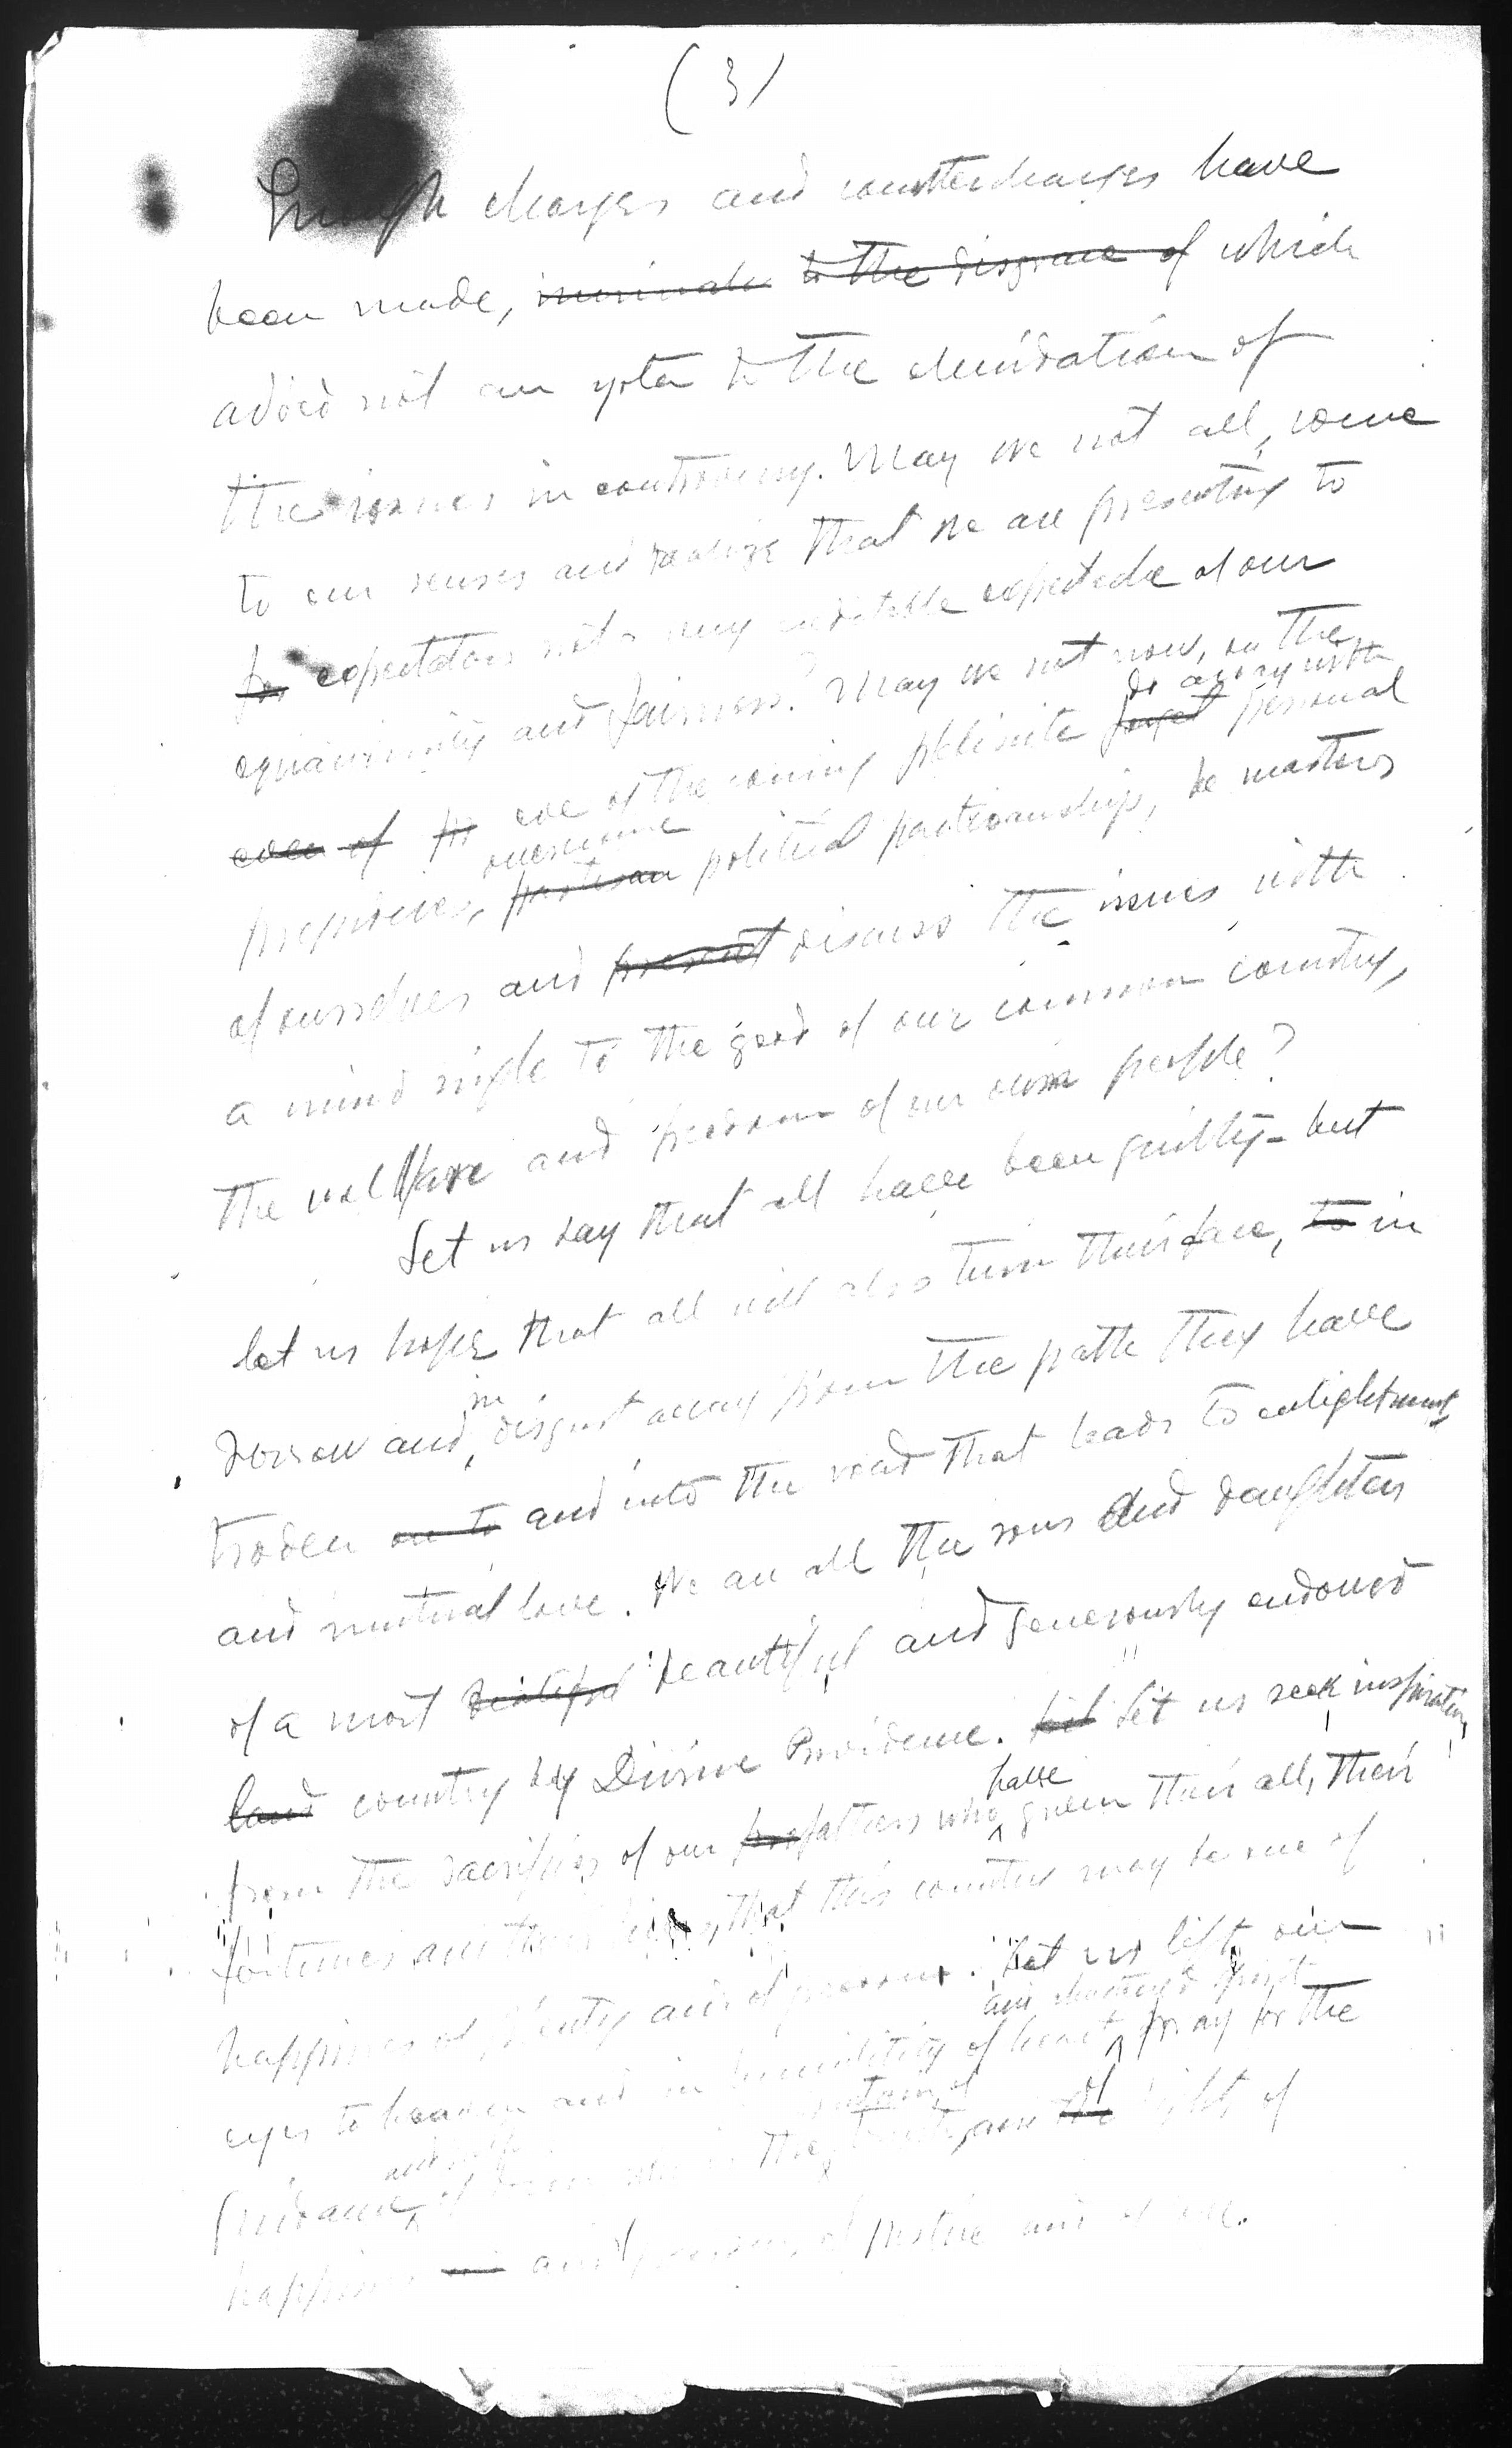 (3)
Enough charges and countercharges have
been made, to the disgrace of which
added not an yota to the elucidation of
the issues in controversy. May we not all, come
to our senses and realize that we are presenting to
for expectators not a very creditable expectacle of our
equanimity and fairness? May we not now, on the
do away with
even of the eve of the coming plebiscite forget personal
overcome
prejudices, partisan political partisanship, be masters
of ourselves and present discuss the issues with
a mind single to the good of our common country,
the wellfare and freedom of our own people?
Let us say that all have been guilty - but
let us hope that all will also turn their face, to in
in
sorrow and disgust away from the path they have
troden on to and into the road that leads to enlightment
and mutual love. We are all the sons and daughters
of a most beautiful and generously endowed
land country by Divine Providence. Let us seek inspiration
have
from the sacrifices of our forefathers who given their all, their
fortunes and their lives, that this country may be one of
happiness of plenty and of freedom. Let us lift our
and spirit
eyes to heaven and in humility of heart pray for the
guidance of the light of
happiness and freedom, of justice and of